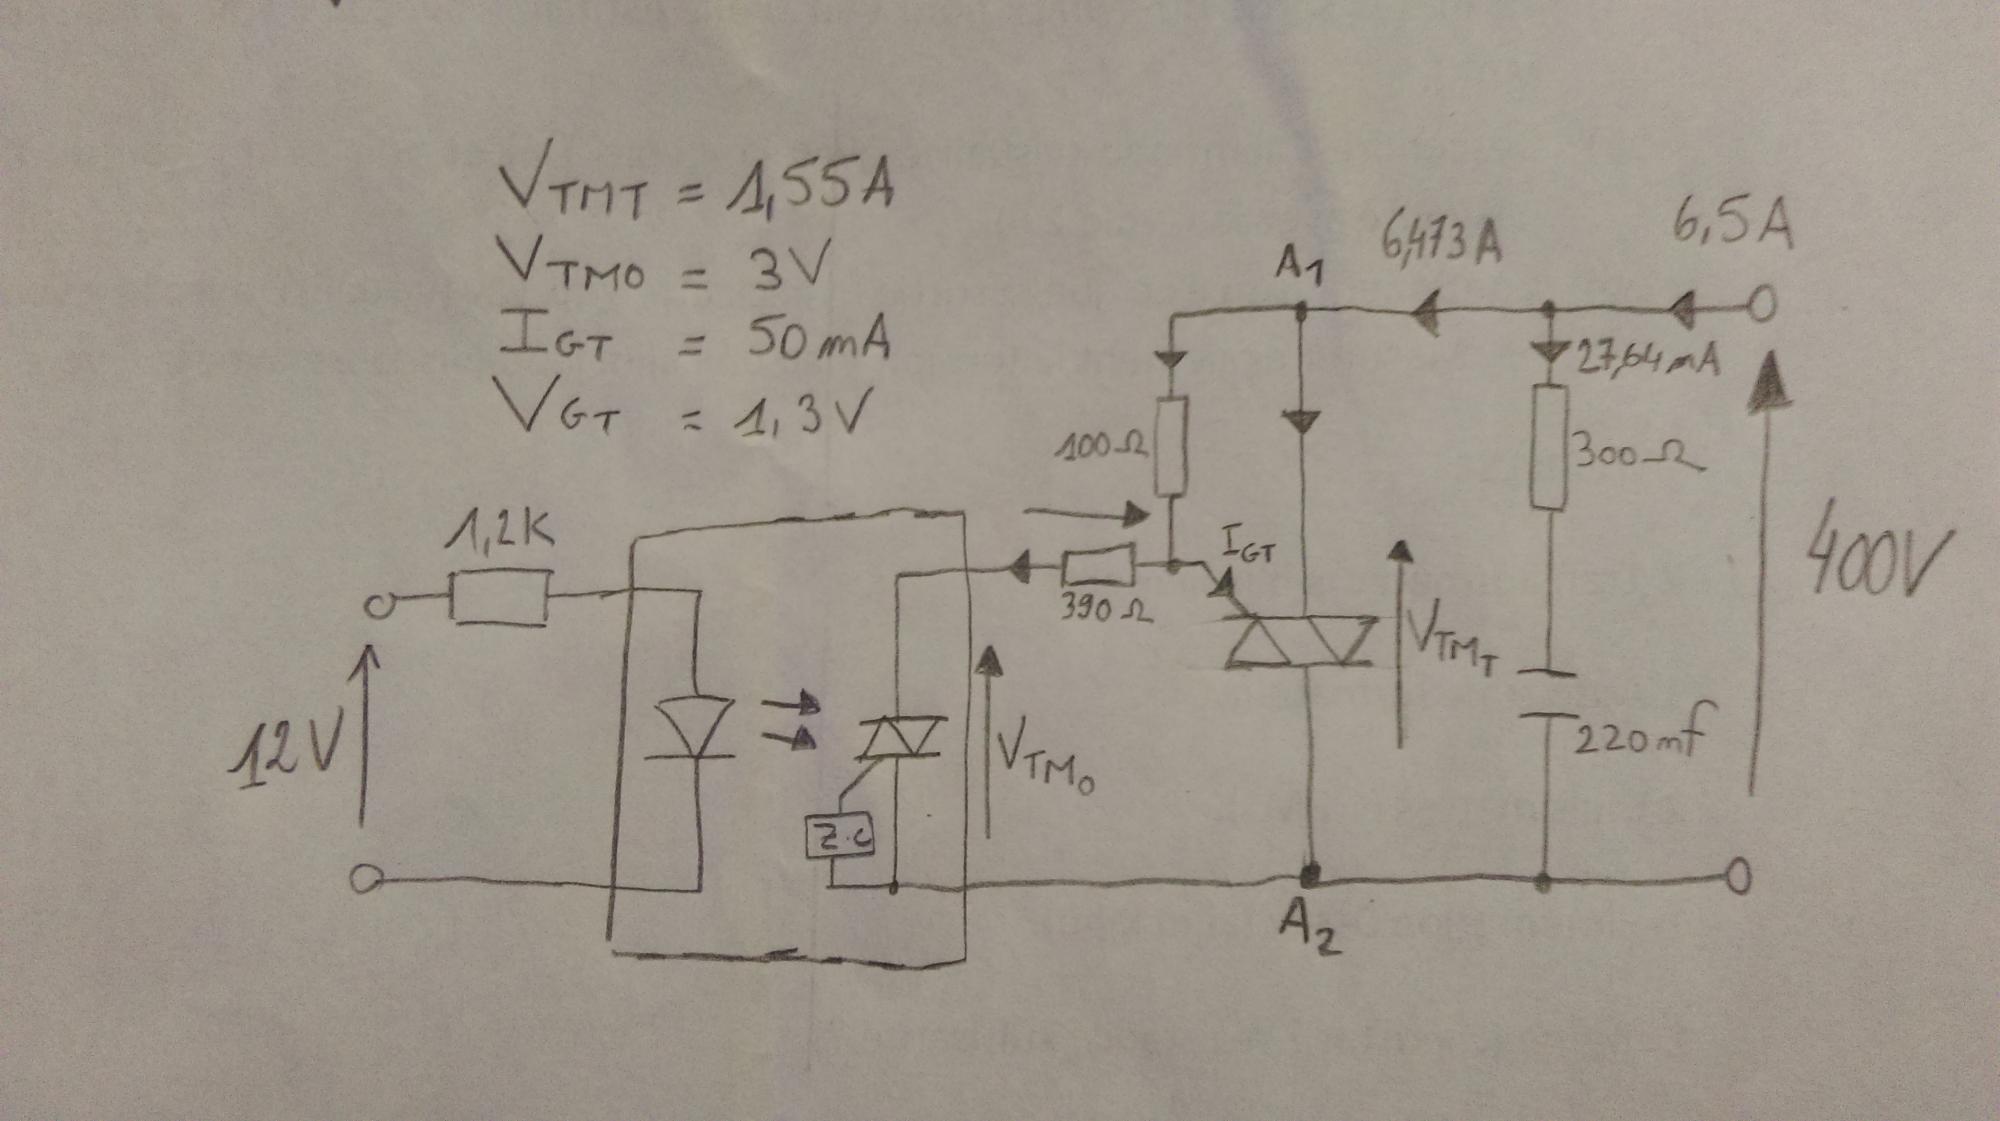 VTMT = 1,55A
VTMO = 3V
IGT = 50mA
VGT = 1,3V
A1
6,473A
6,5A
27,64mA
100Ω
300Ω
1,2K
IGT
390Ω
400V
VTMT
12V
VTMO
220mf
Z.C
A2